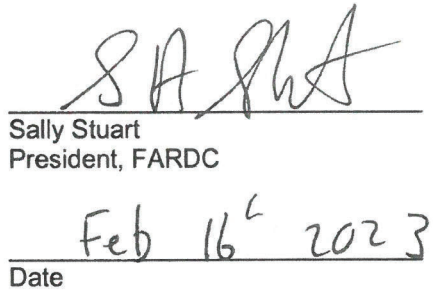 Sally Stuart
President, FARDC
Feb 16 2023
Date